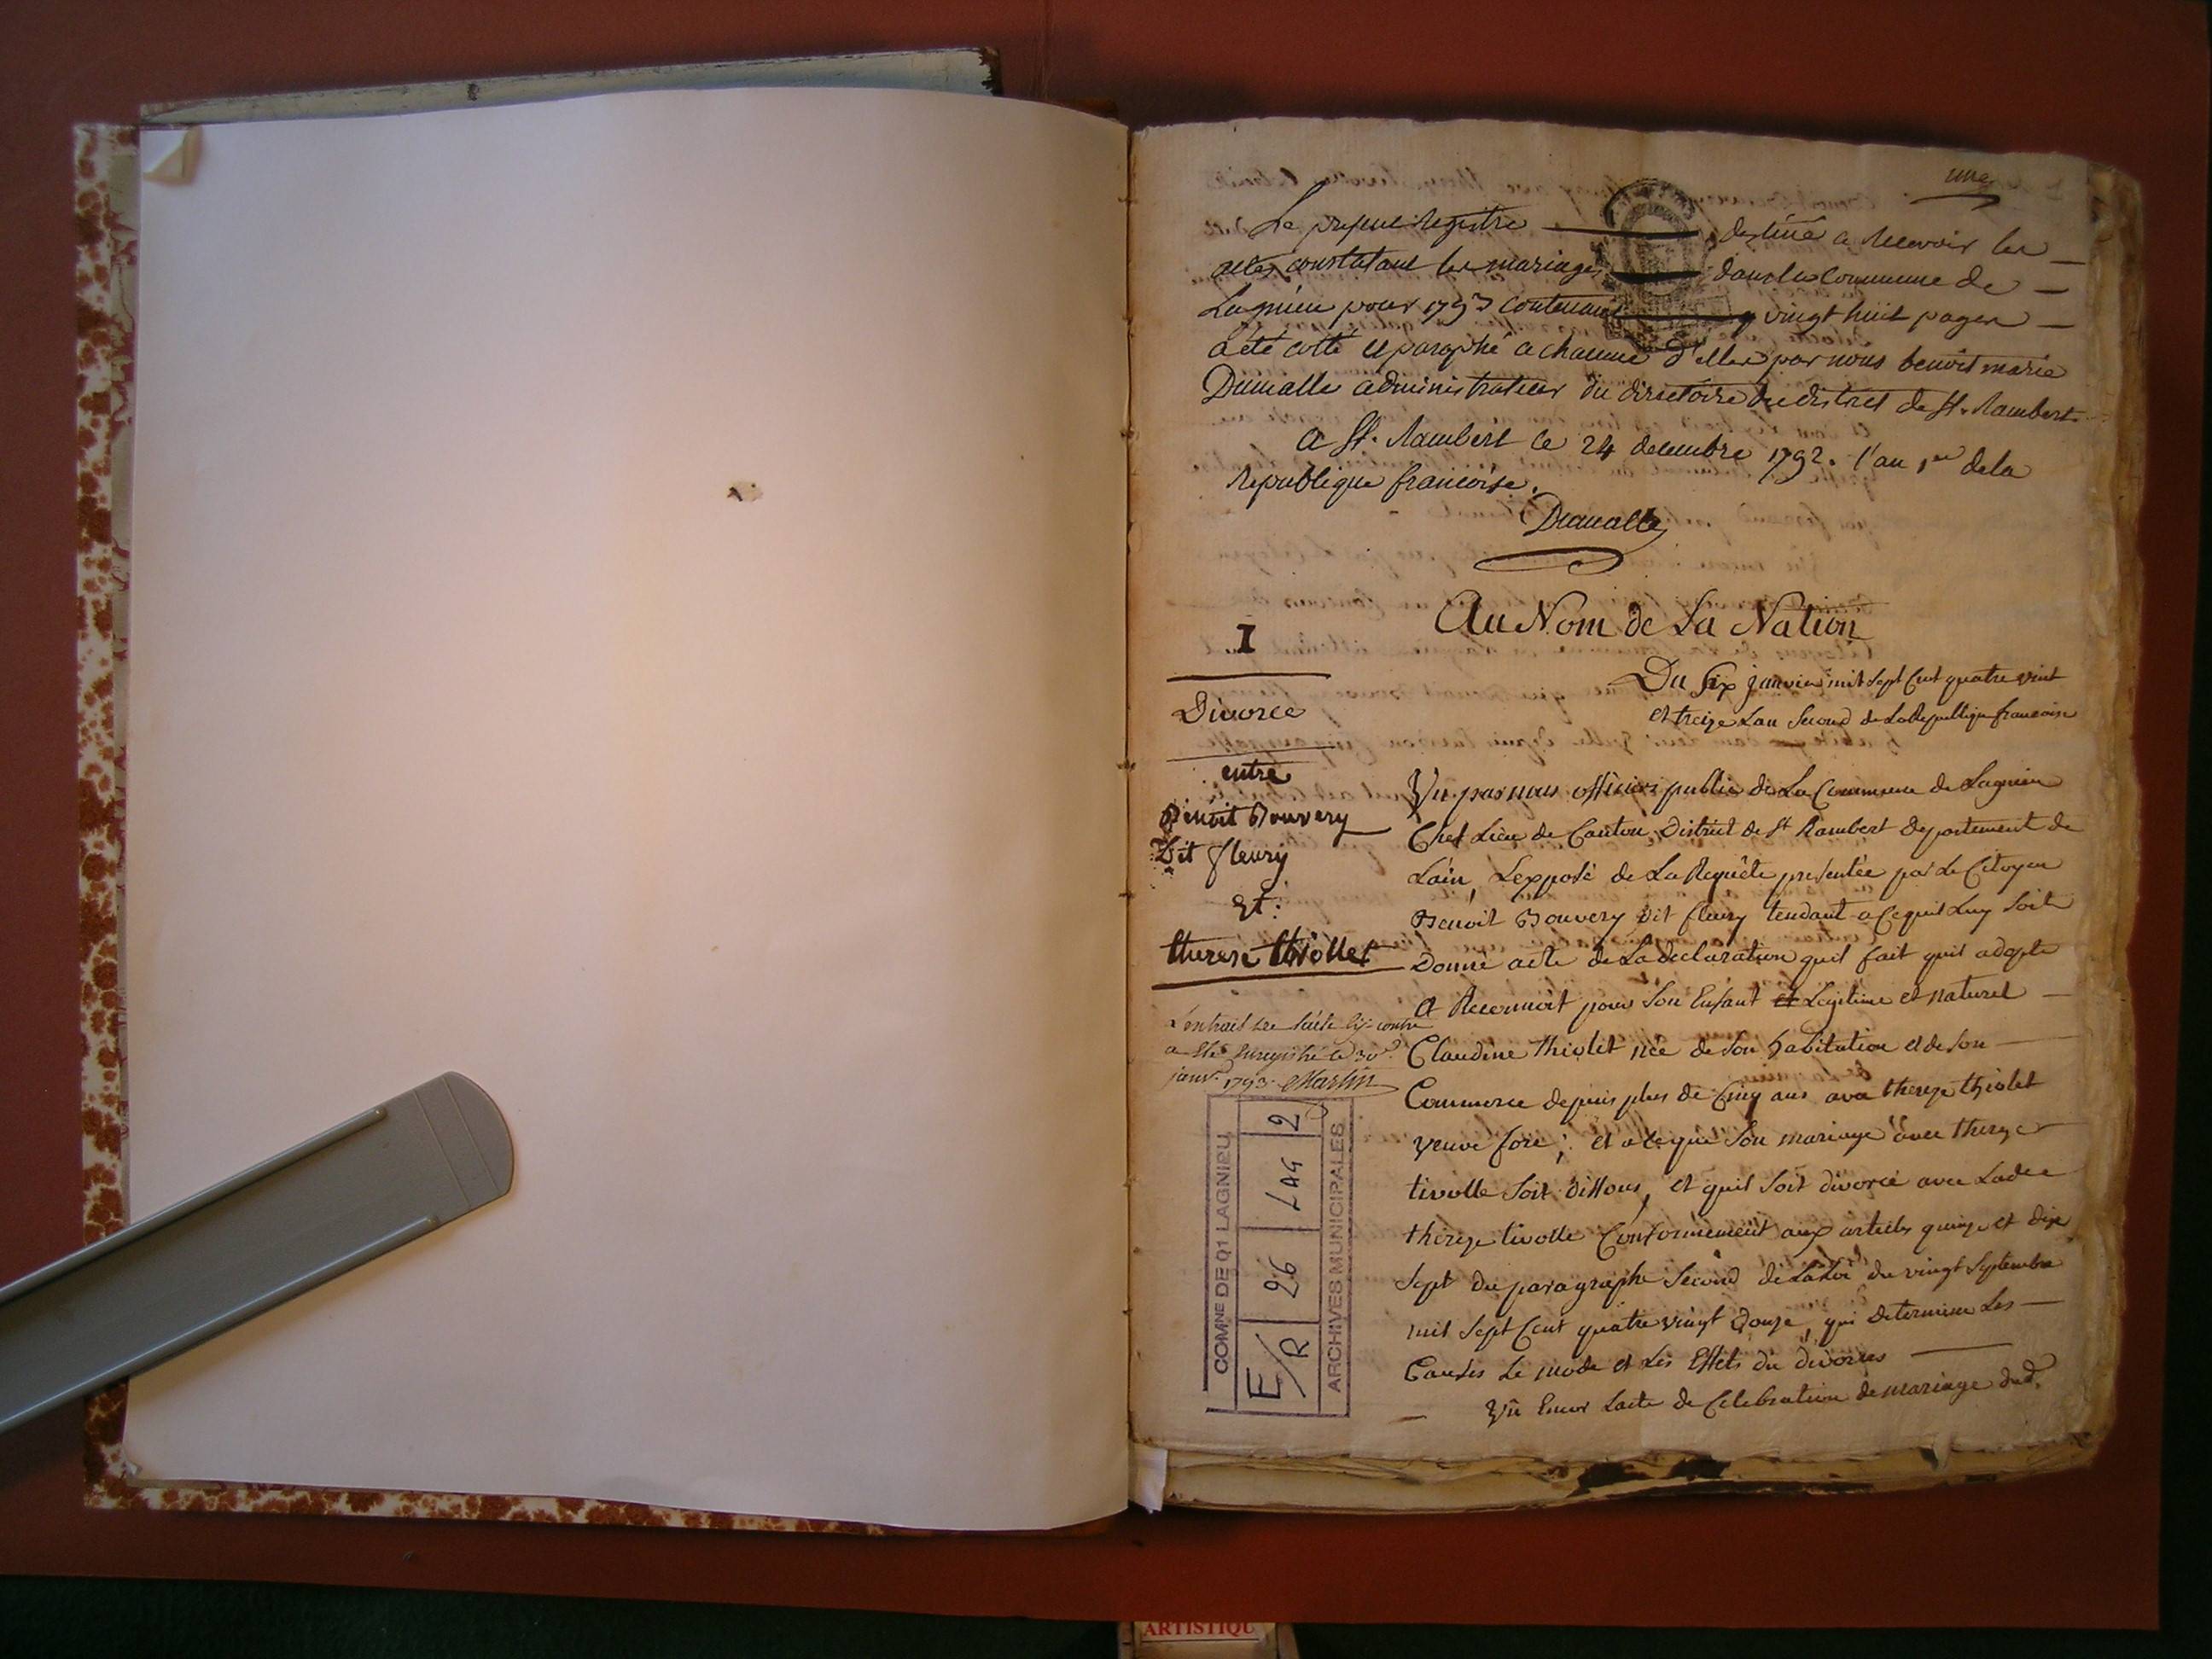 une
Le present Registre destiné a Recevoir les
actes constatant les mariages dans la Commune de
Lagnieu pour 1793 contenant vingt huit pages
a été cotté et paraphé a chacune d'elles par nous benoit marie
Dumalle administrateur du directoire du district de St. Rambert
a St. Rambert ce 24 decembre 1792. l'an 1er de la
Republique francoise.
Dumalle
Au Nom de La Nation
1
Du Six janvier mil Sept Cent quatre vint
et treize Lan Second de La Republique francoise
Divorce
entre
Benoit Bouvery
Dit fleury
Et
therese thiollet
L'extrait de l'acte cy-contre
a été Enregistré le 30
janvr. 1793. Martin
Vu par nous officier public de La Commune de Lagnieu
Chef Lieu de Canton, District de St Rambert Departement de
Lain, Lexposé de La Requête presentée par Le Citoyen
Benoit Bouvery Dit fleury tendant a Ce quil Luy Soit
Donné acte de La declaration quil fait quil adopte
et Reconnoit pour Son Enfant et Legitime et naturel
Claudine thiolet née de Son habitation et de Son
Commerce depuis plus de Cinq ans avec thereze thiolet
veuve fore; et a ce que Son mariage avec thereze
tivolle Soit dissous, et quil Soit divorcé avec Ladee
thereze tivolle Conformement aux articles quinze et dix
Sept du paragraphe Second de La Loi du vingt Septembre
mil Sept Cent quatre vingt douze, qui determine Les
Causes Le mode et Les Effets du divorces
Vû Encor Lacte de Celebration de mariage dud.
COMNE DE 01 LAGNIEU
E/R 26 LAG 2
ARCHIVES MUNICIPALES
ARTISTIQU